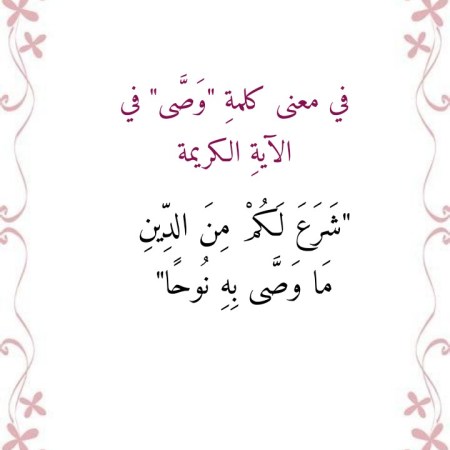 في معنى كلمةِ "وَصَّى" في
الآيةِ الكريمة
"شَرَعَ لَكُمْ مِنَ الدِّينِ
مَا وَصَّى بِهِ نُوحًا"